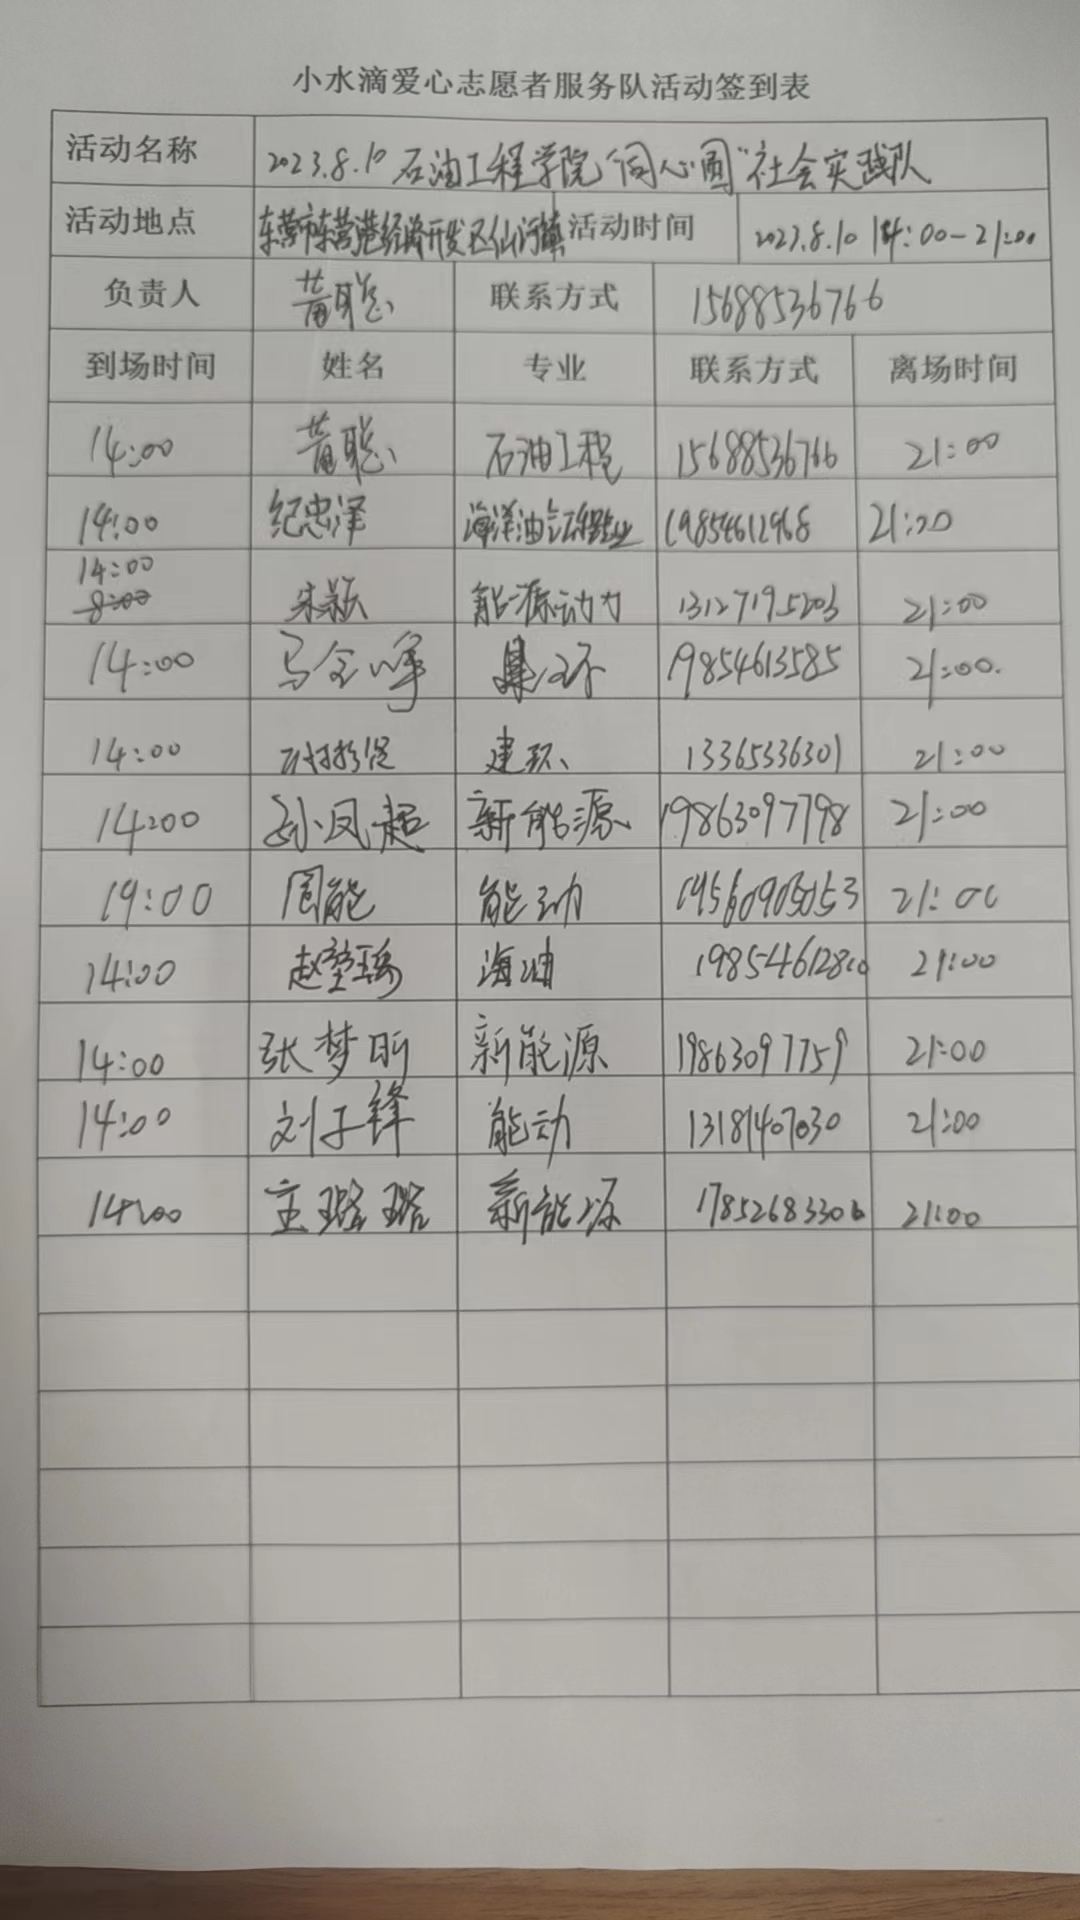 小水滴爱心志愿者服务队活动签到表
活动名称 2023.8.10 石油工程学院“同心圆”社会实践队
活动地点 东营市东营港经济开发区仙河镇 活动时间 2023.8.10 14:00-21:00
负责人 黄聪 联系方式 15688536766
到场时间 姓名 专业 联系方式 离场时间
14:00 黄聪 石油工程 15688536766 21:00
14:00 纪忠泽 海洋油气工程专业 19854612968 21:00
14:00
8:00 朱颖 能源动力 13127195203 21:00
14:00 马全峰 建环 19854613585 21:00.
14:00 建环 13365336301 21:00
14:00 孙凤超 新能源 19863097798 21:00
19:00 周能 能动 19560905053 21:00
14:00 海油 19854612810 21:00
14:00 张梦昕 新能源 19863097759 21:00
14:00 刘子锋 能动 13181407030 21:00
14:00 王璐璐 新能源 17852683306 21:00